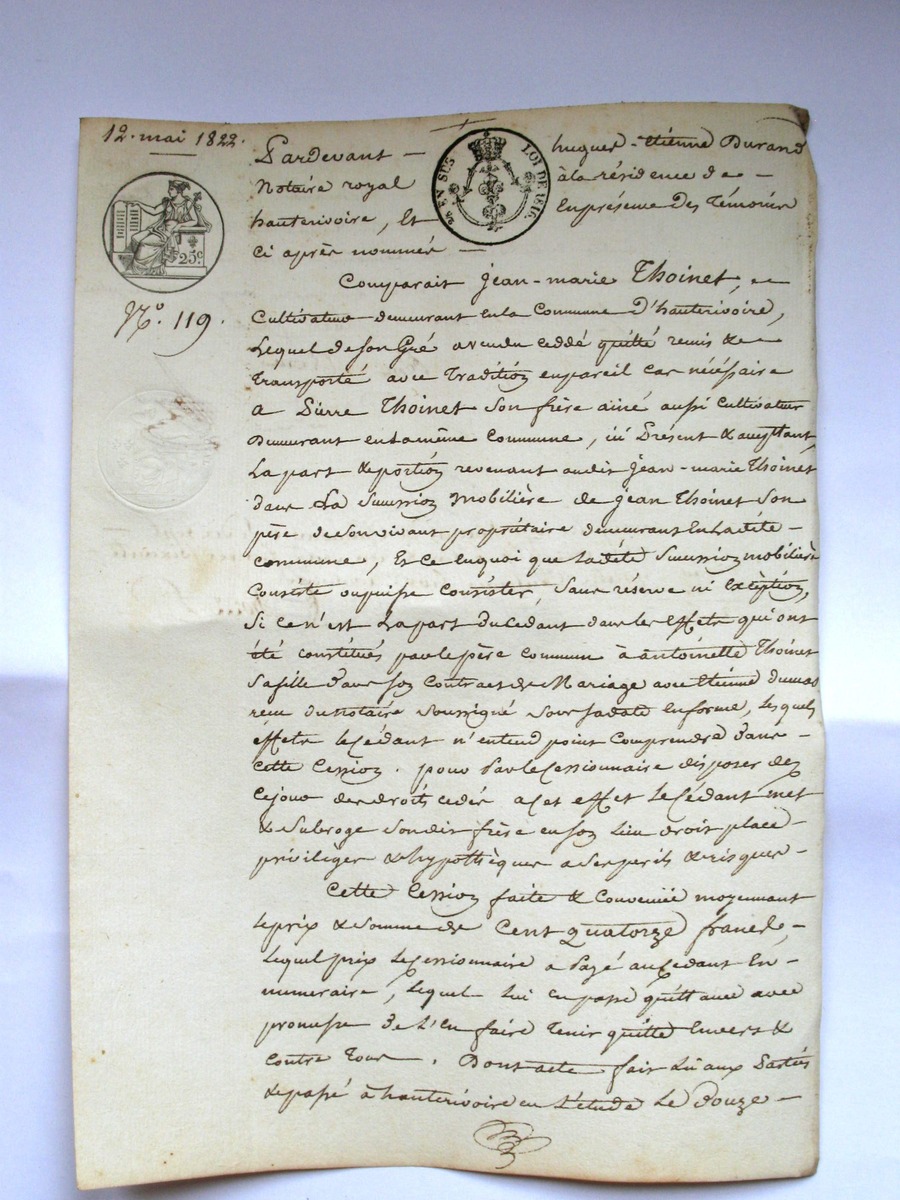 12. mai 1822.
Pardevant — hugues-étienne Durand
Notaire royal à la résidence de —
hauterivoire, Et En présence Des Témoins
Ci après nommés —
25 EN SUS LOI DE 1816
25 c.
N.º 119.
Comparait Jean-marie Thoinet,
Cultivateur demeurant En la Commune D'hauterivoire,
Lequel de son Gré a vendu cèddé quitté remis &
Transporté avec Tradition en pareil cas nécéssaire
a Pierre Thoinet son frère ainé aussi Cultivateur
Demeurant en la même Commune, ici Présent & acceptant,
La part & portion revenant audit Jean-marie Thoinet
dans La Succession Mobilière de Jean Thoinet Son
père de son vivant propriétaire demeurant En ladite —
commune, Et ce en quoi que ladite Succession mobilière
Consiste ou puisse Consister, Sans réserve ni Excèption,
Si ce n'est La part du Cedant dans les Effets qui ont
été constitués par le père Commun à antoinette Thoinet
Sa fille dans son Contract de Mariage avec étienne dumas
recu du notaire soussigné sous sa date En forme, Les quels
éffets le Cédant n'entend point Comprendre dans —
cette Cession. pour Par le Cessionnaire disposer dès
ce jour des droits cedés a cet effet Le Cédant met
& Subroge son dit frère en son Lieu droit place —
privilèges & hypothèques a ses perils & risques —
Cette Cession faite & Convenue moyennant
Le prix & somme de Cent quatorze francs, —
Lequel prix Le Cessionnaire a Payé au Cedant En —
numeraire, Lequel Lui en passe quittance avec
promesse de L'en faire Tenir quitte Envers &
contre Tous. Dont acte fait Lu aux Parties
& passé à hauterivoire en L'étude Le Douze —